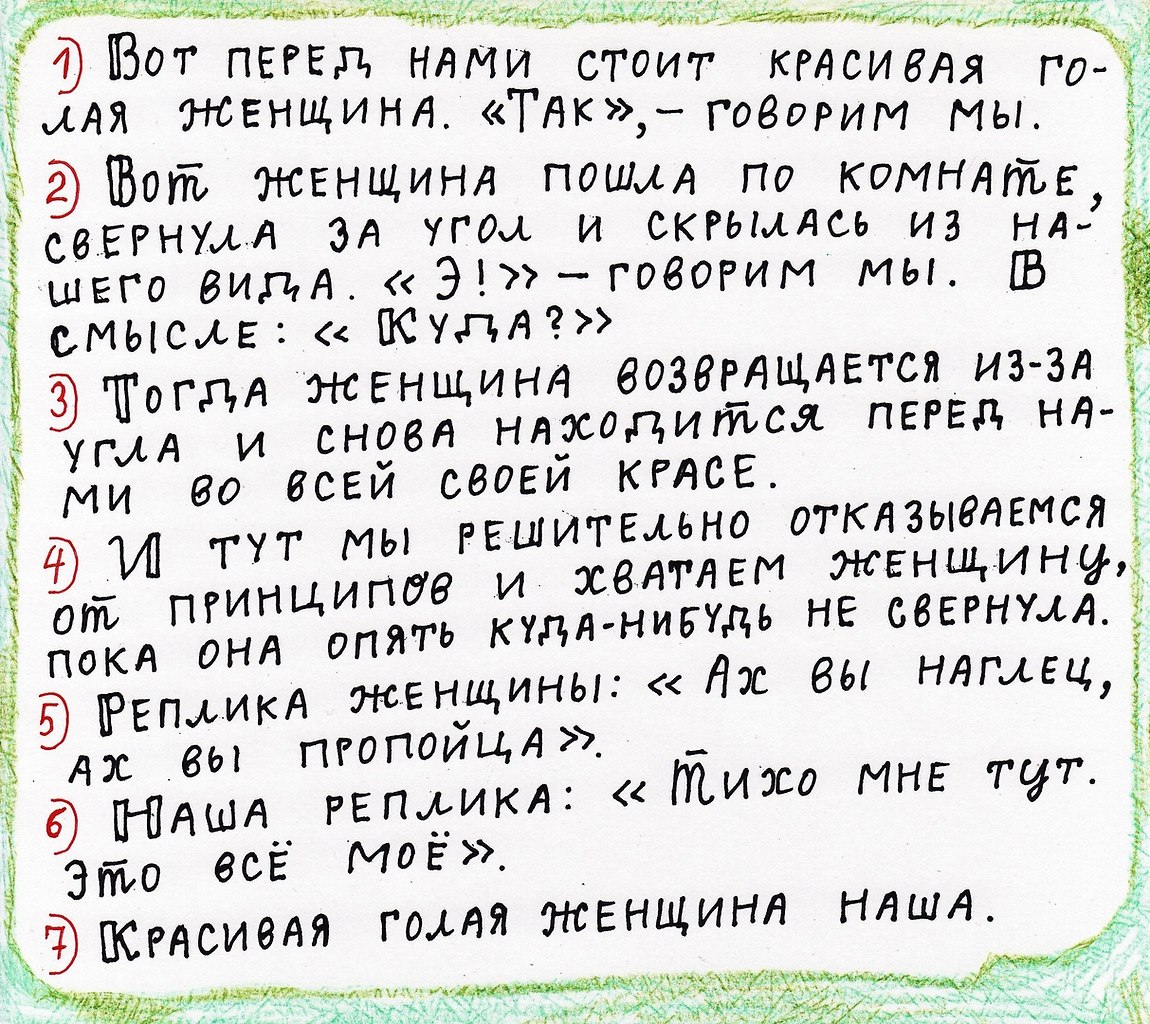 1) Вот перед нами стоит красивая го-
лая женщина. «Так», – говорим мы.
2) Вот женщина пошла по комнате,
свернула за угол и скрылась из на-
шего вида. «Э!» – говорим мы. В
смысле: «Куда?»
3) Тогда женщина возвращается из-за
угла и снова находится перед на-
ми во всей своей красе.
4) И тут мы решительно отказываемся
от принципов и хватаем женщину,
пока она опять куда-нибудь не свернула.
5) Реплика женщины: «Ах вы наглец,
ах вы пропойца».
6) Наша реплика: «Тихо мне тут.
Это всё моё».
7) Красивая голая женщина наша.